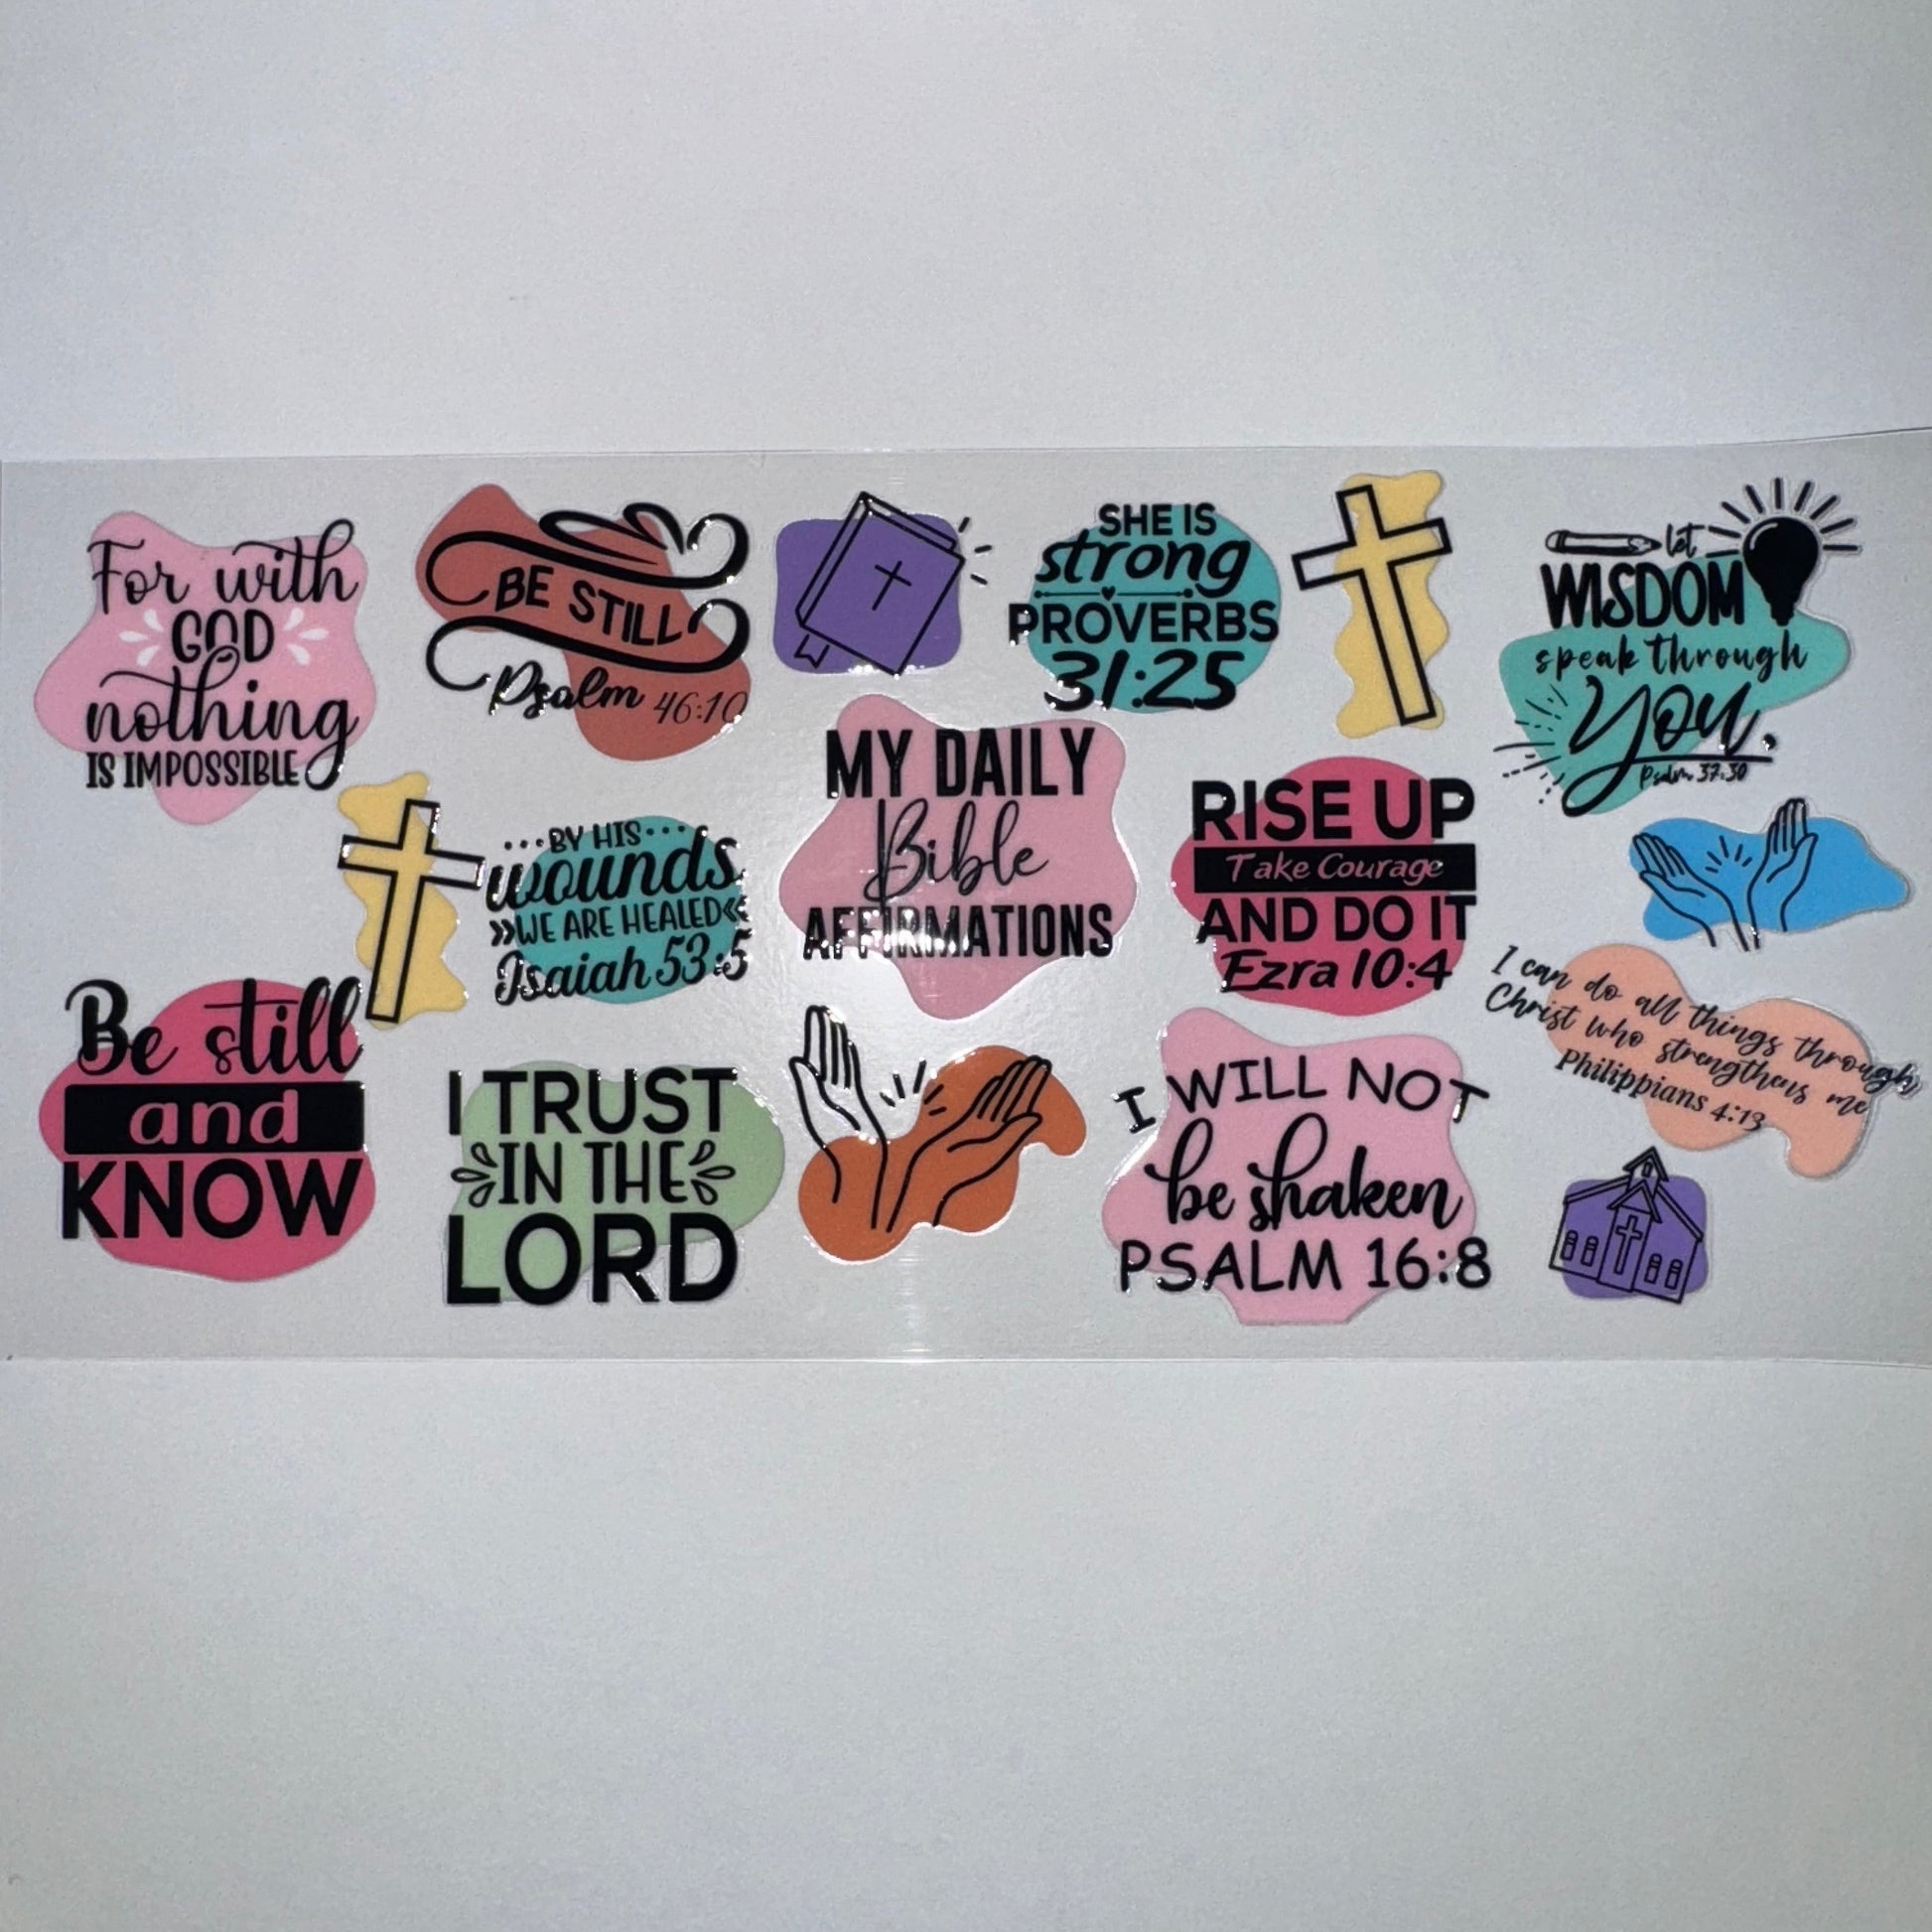 For with
GOD
nothing
IS IMPOSSIBLE
BE STILL
Psalm 46:10
SHE IS
strong
PROVERBS
31:25
let
WISDOM
speak through
you.
Psalm 37:30
BY HIS
wounds
WE ARE HEALED
Isaiah 53:5
MY DAILY
Bible
AFFIRMATIONS
RISE UP
Take Courage
AND DO IT
Ezra 10:4
I can do all things through
Christ who strengthens me
Philippians 4:13
Be still
and
KNOW
I TRUST
IN THE
LORD
I WILL NOT
be shaken
PSALM 16:8